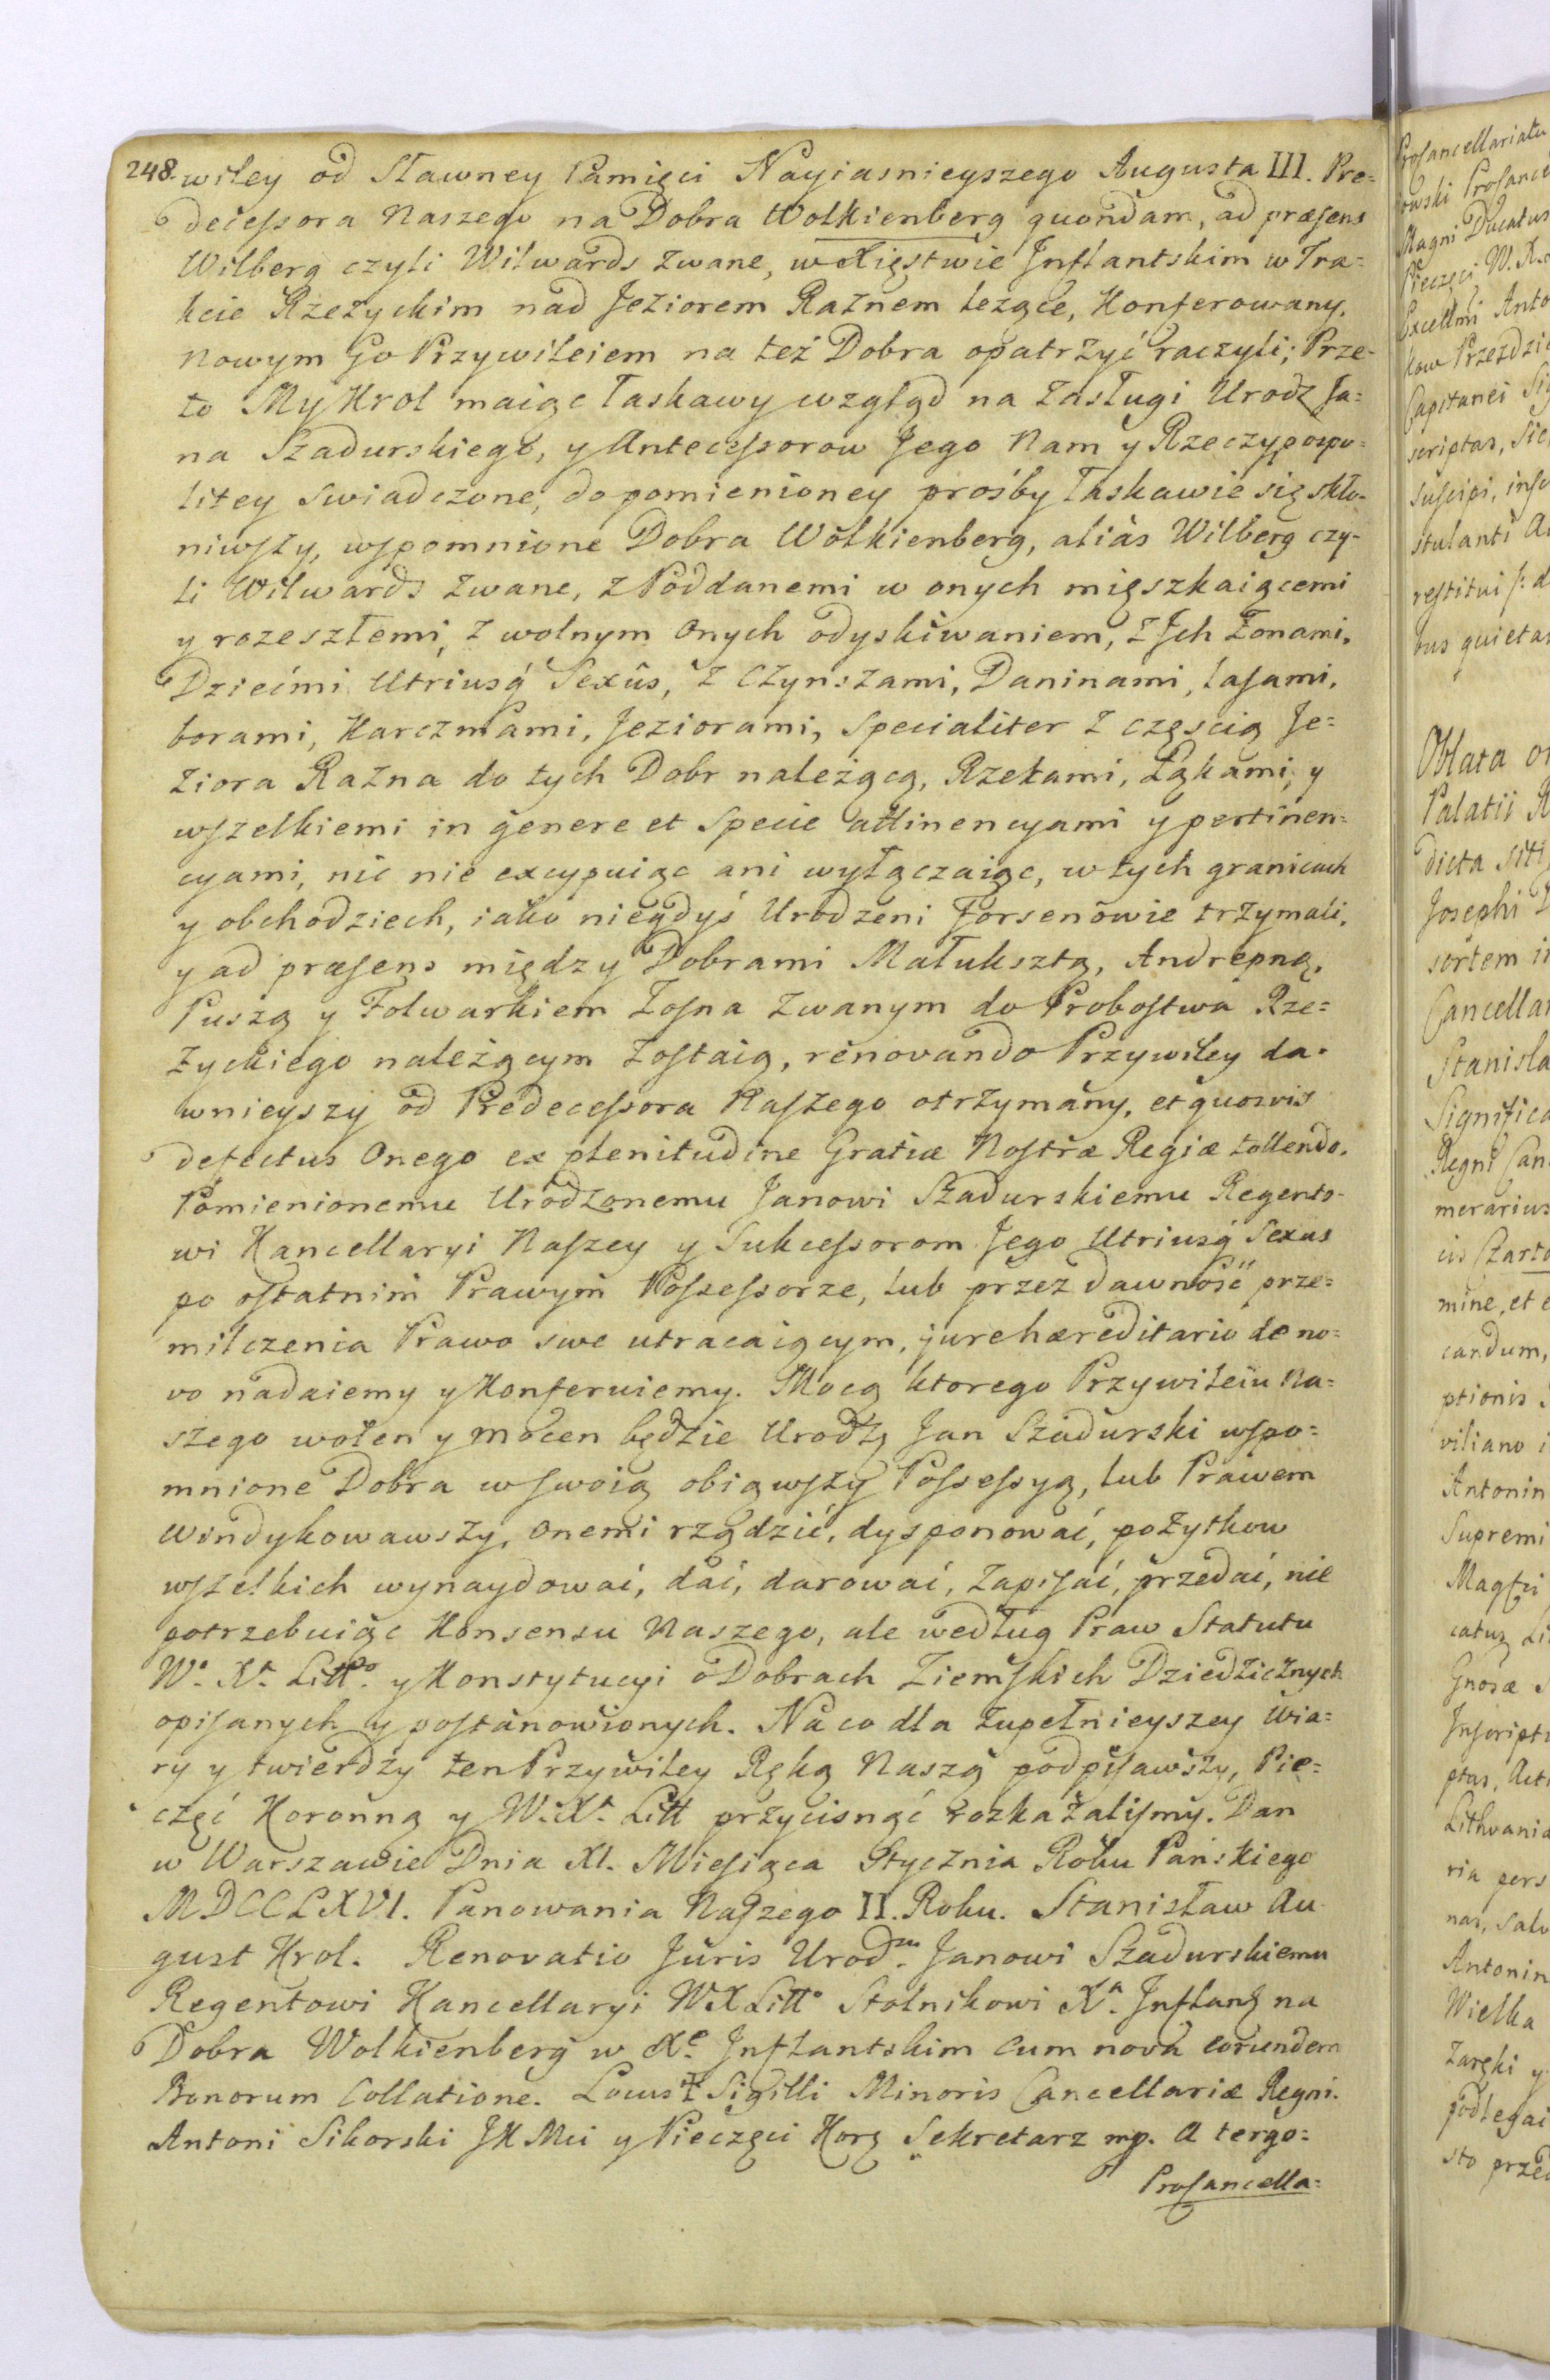 248. wiley od Sławney Pamięci Nayiasnieyszego Augusta III. Pre=
decessora Naszego na Dobra Wolkienberg quondam, ad præsens
Wilberg czyli Wilwards zwane, w Xięstwie Inflantskim w Tra=
kcie Rzeżyckim nad Jeziorem Raznem leżące, Konferowany,
nowym Go Przywileiem na też Dobra opatrzyć raczyli; Prze=
to My Krol maiąc łaskawy wzgląd na zasługi Urodz Ja=
na Szadurskiego, y Antecessorow Jego Nam y Rzeczypospo=
litey swiadczone, do pomienioney prośby łaskawie się skło=
niwszy, wspomnione Dobra Wolkienberg, aliàs Wilberg czy=
li Wilwards zwane, z Poddanemi w onych mięszkaiącemi
y rozeszłemi, z wolnym onych odyskiwaniem, z Jch Żonami,
Dziećmi Utriusq́ Sexûs, z Czynszami, Daninami, lasami,
borami, Karczmami, Jeziorami, specialiter z częscią Je=
ziora Razna do tych Dobr należącą, Rzekami, Łąkami, y
wszelkiemi in genere et specie attinencyami y pertinen=
cyami, nic nie excypuiąc ani wyłączaiąc, w tych granicach
y obchodziech, iako niegdyś Urodzeni Forsenowie trzymali,
y ad præsens między Dobrami Małuksztą, Andrepną,
Puszą y Folwarkiem Zosna zwanym do Probostwa Rze=
życkiego należącym zostaią, renovando Przywiley da=
wnieyszy od Predecessora Naszego otrzymany, et quosvis
defectus Onego ex plenitudine Gratiæ Nostræ Regiæ tollendo.
Pomienionemu Urodzonemu Janowi Szadurskiemu Regento=
wi Kancellaryi Naszey y Sukcessorom Jego Utriusq́ Sexus
po ostatnim Prawym Possessorze, lub przez dawność prze=
milczenia Prawo swe utracaiącym, jure hæreditario de no=
vo nadaiemy y Konferuiemy. Mocą ktorego Przywileiu Na=
szego wolen y mocen będzie Urodz Jan Szadurski wspo=
mnione Dobra w swoią obiąwszy Possessyą, lub Prawem
windykowawszy, onemi rządzić, dysponować, pożytkow
wszelkich wynaydować, dać, darować, zapisać, przedać, nie
potrzebuiąc Konsensu Naszego, ale według Praw Statutu
Wo. Xa. Litto. y Konstytucyi o Dobrach Ziemskich Dziedzicznych
opisanych y postanowionych. Na co dla zupełnieyszey wia=
ry y twierdzy ten Przywiley Ręką Naszą podpisawszy, Pie=
częć Koronną y W. Xa. Litt przycisnąć rozkazalismy. Dan
w Warszawie Dnia XI. Miesiąca Stycznia Roku Panskiego
MDCCLXVI. Panowania Naszego II. Roku. Stanisław Au=
gust Krol. Renovatio Juris Urodm. Janowi Szadurskiemu
Regentowi Kancellaryi WXLitto Stolnikowi Xa. Inflanz na
Dobra Wolkienberg w Xe. Inflantskim cum nova eorundem
Bonorum Collatione. Locus Sigilli Minoris Cancellariæ Regni.
Antoni Sikorski JKMci y Pieczęci Korq Sekretarz mp. A tergo=
Procancella=
Procancellariatu
Magni Ducatus
Pieczęci W. X.
Excellmi Anto
kow Przezdzie
Capitanei Sig
scriptas, Sic
suscipi, insc
stulanti
restitui
bus quietar
Oblata
Palatii
dicta
Josephi
sortem in
Cancellar
Stanisla
Significa
Regni Can
merarius
cis Czarto
mine, et
candum,
ptionis
viliano
Antonin
Supremi
catus
Gnosæ
Inscripti
ptas, Act
Lithvania
ria pers
nas, salv
Antonin
Wielka
Zaręki y
podlegai
sto przed